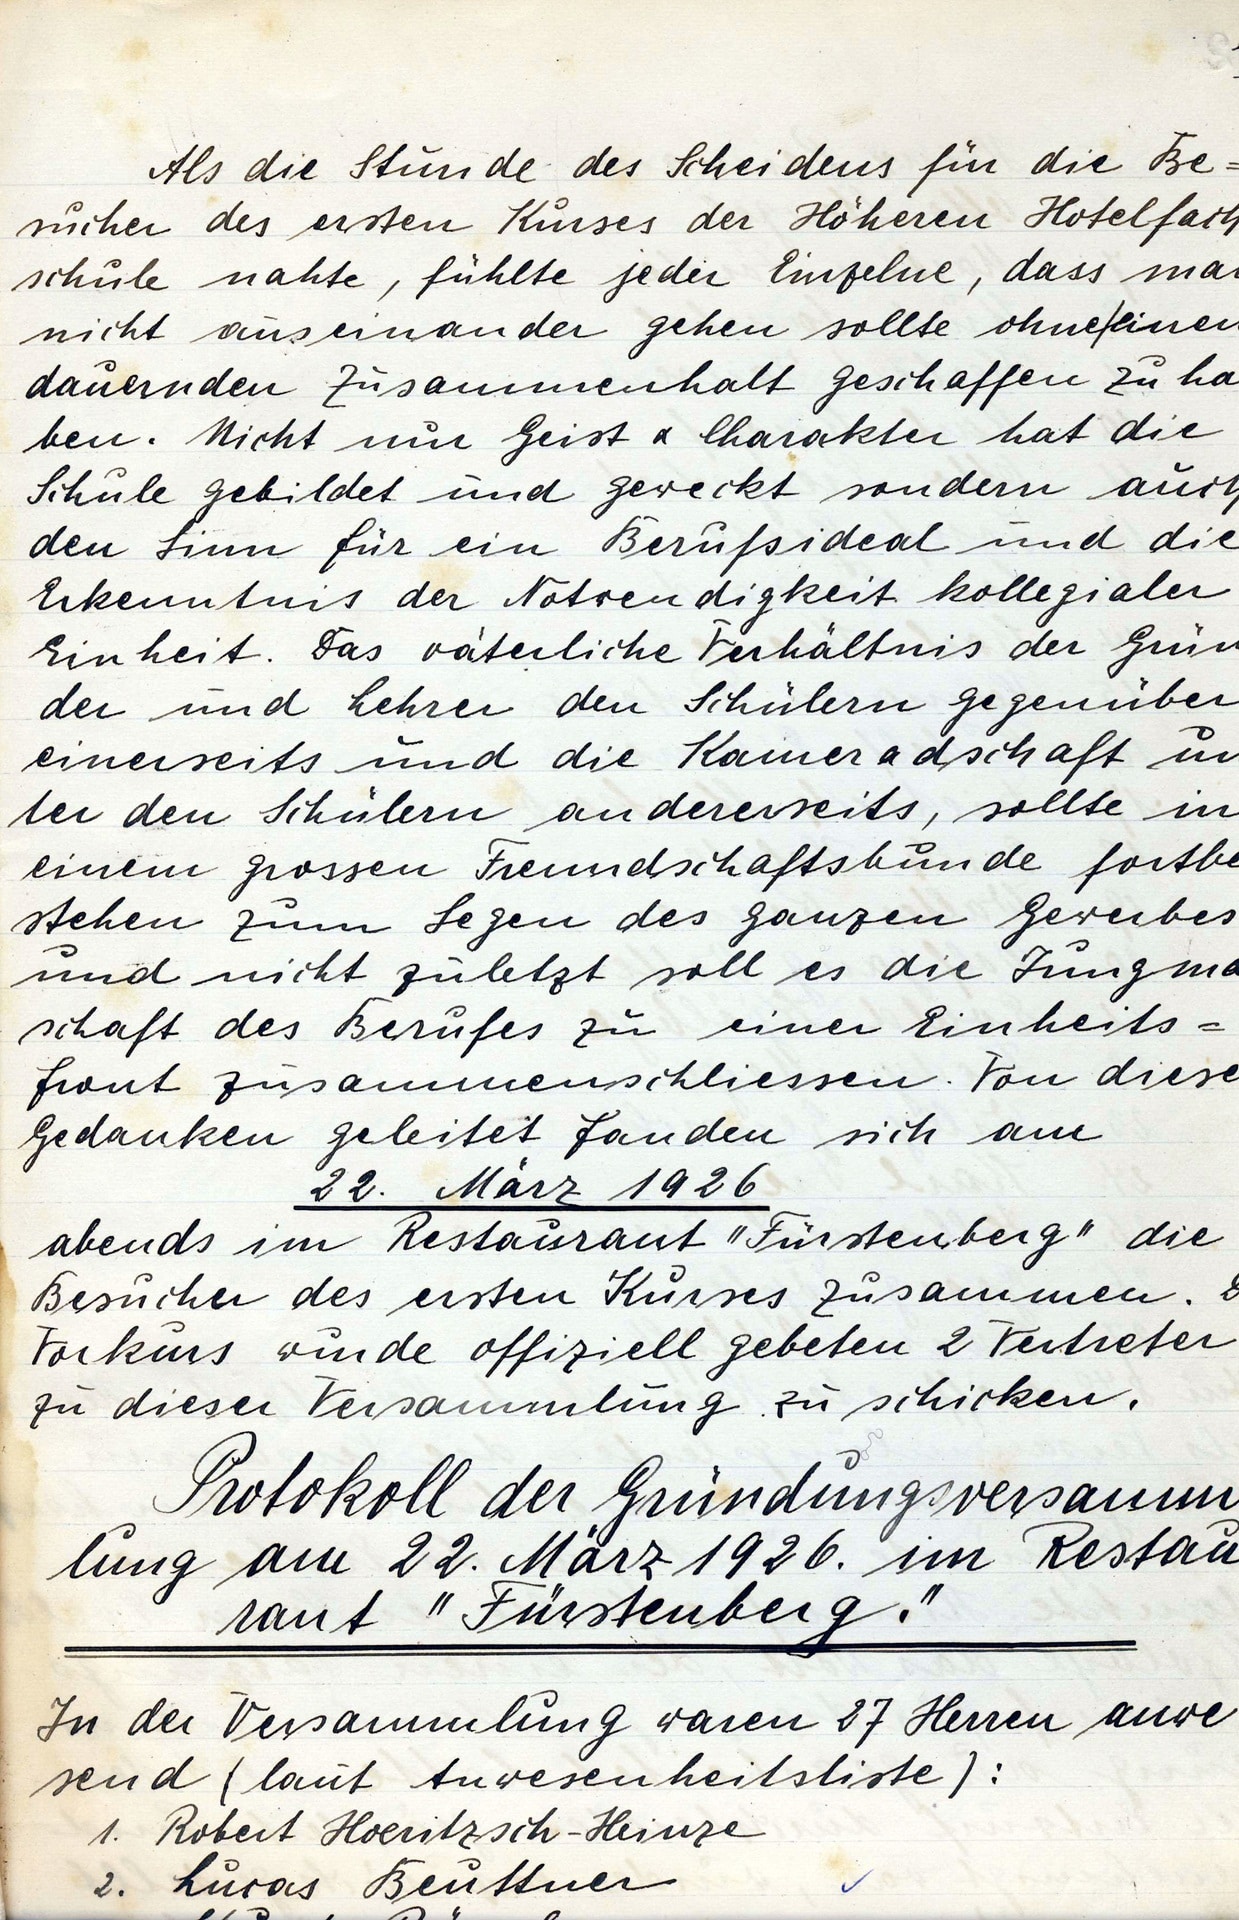 Als die Stunde des Scheidens für die Be=
sucher des ersten Kurses der Höheren Hotelfach
schule nahte, fühlte jeder Einzelne, dass man
nicht auseinander gehen sollte ohne einen
dauernden Zusammenhalt geschaffen zu ha
ben. Nicht nur Geist & Charakter hat die
Schule gebildet und geweckt sondern auch
den Sinn für ein Berufsideal und die
Erkenntnis der Notwendigkeit kollegialer
Einheit. Das väterliche Verhältnis der Grün
der und Lehrer den Schülern gegenüber
einerseits und die Kameradschaft un
ter den Schülern andererseits, sollte in
einem grossen Freundschaftsbunde fortbe
stehen zum Segen des ganzen Gewerbes
und nicht zuletzt soll es die Jungma
schaft des Berufes zu einer Einheits=
front zusammenschliessen. Von diese
Gedanken geleitet fanden sich am
22. März 1926
abends im Restaurant "Fürstenberg" die
Besucher des ersten Kurses zusammen.
Vorkurs wurde offiziell gebeten 2 Vertreter
zu dieser Versammlung zu schicken.
Protokoll der Gründungsversamm
lung am 22. März 1926. im Restau
rant "Fürstenberg."
In der Versammlung waren 27 Herren anwe
send (laut Anwesenheitsliste):
1. Robert Hoeritzsch-Heinze
2. Lucas Beuttner